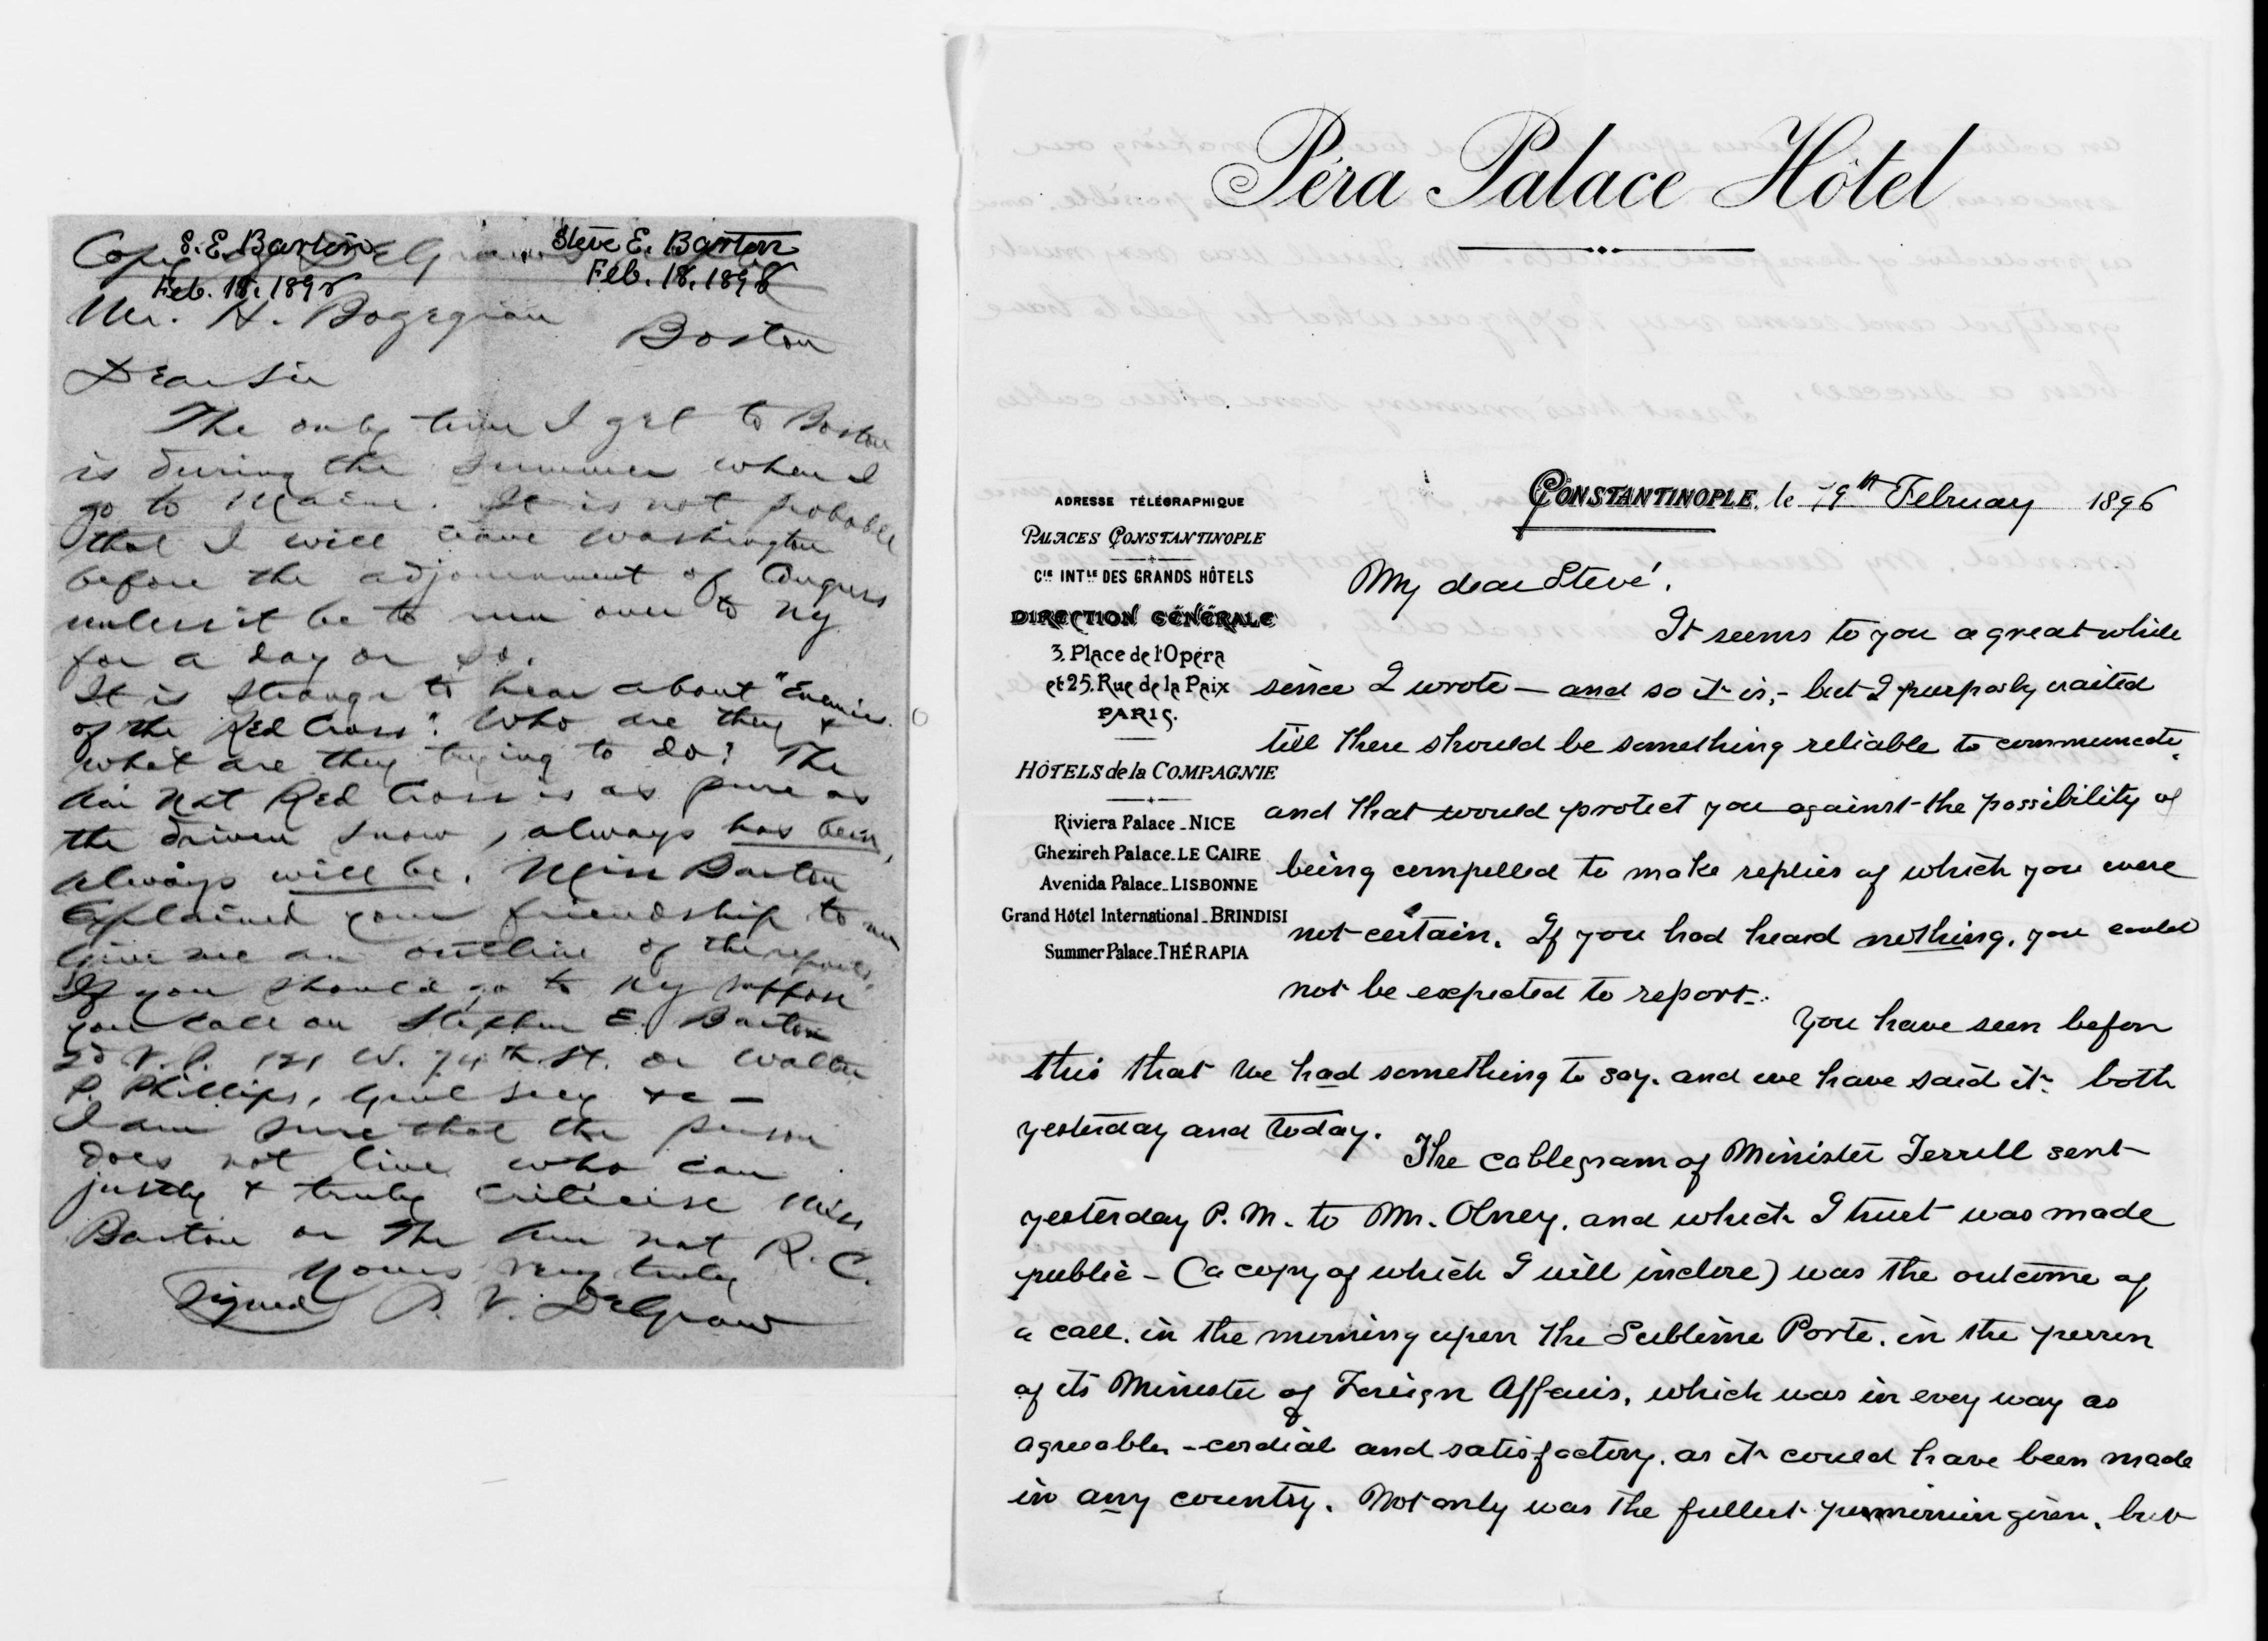 S. E. Barton
Feb. 18, 1896
Steve E. Barton
Feb. 18, 1896
Copy
Mr. H. Bogigian
Boston
Dear Sir
The only time I get to Boston
is during the summer when I
go to Maine. It is not probable
that I will leave Washington
before the adjournment of Congress
unless it be to run over to NY
for a day or so.
It is strange to hear about "Enemies
of the Red Cross". Who are they &
what are they trying to do? The
Am Nat Red Cross is as pure as
the driven snow, always has been,
always will be. Miss Barton
explained your friendship to me
Give me an outline of the reports.
If you should go to NY suppose
you call on Stephen E. Barton
2d V.P. 121 W. 74th St. or Walter
P. Phillips, Genl Secy &c —
I am sure that the person
does not live who can
justly & truly criticise Miss
Barton or The Am Nat R.C.
Yours very truly
Signed P. V. DeGraw
Péra Palace Hôtel
CONSTANTINOPLE, le 19th February 1896
ADRESSE TÉLÉGRAPHIQUE
PALACES CONSTANTINOPLE
Cie INTle DES GRANDS HÔTELS
DIRECTION GÉNÉRALE
3, Place de l'Opéra
et 25, Rue de la Paix
PARIS.
HÔTELS de la COMPAGNIE
Riviera Palace _ NICE
Ghezireh Palace _ LE CAIRE
Avenida Palace _ LISBONNE
Grand Hôtel International _ BRINDISI
Summer Palace _ THÉRAPIA
My dear Steve',
It seems to you a great while
since I wrote — and so it is, - but I purposly waited
till there should be something reliable to communicate,
and that would protect you against the possibility of
being compelled to make replies of which you were
not certain. If you had heard nothing, you could
not be expected to report.
You have seen before
this that we had something to say. and we have said it both
yesterday and today.
The cablegram of Minister Terrell sent
yesterday P.M. to Mr. Olney, and which I trust was made
public - (a copy of which I will inclose) was the outcome of
a call, in the morning upon the Sublime Porte, in the person
of its Minister of Foreign Affairs, which was in every way as
agreeable - cordial and satisfactory, as it could have been made
in any country. Not only was the fullest permission given, but